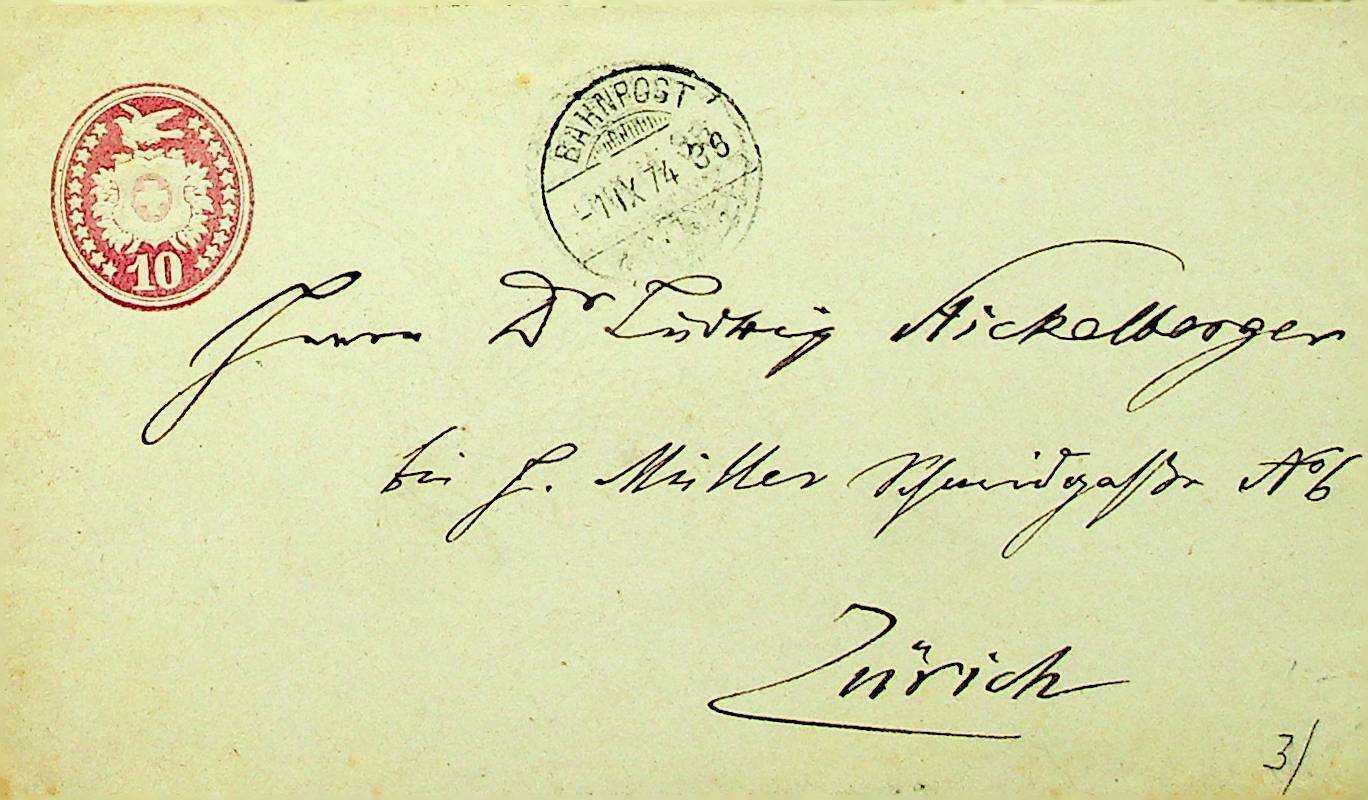 10
BAHNPOST
-1 IX 74
Herrn Dr Ludwig Aickelberger
bei H. Müller Schmidgasse No 6
Zürich
3/